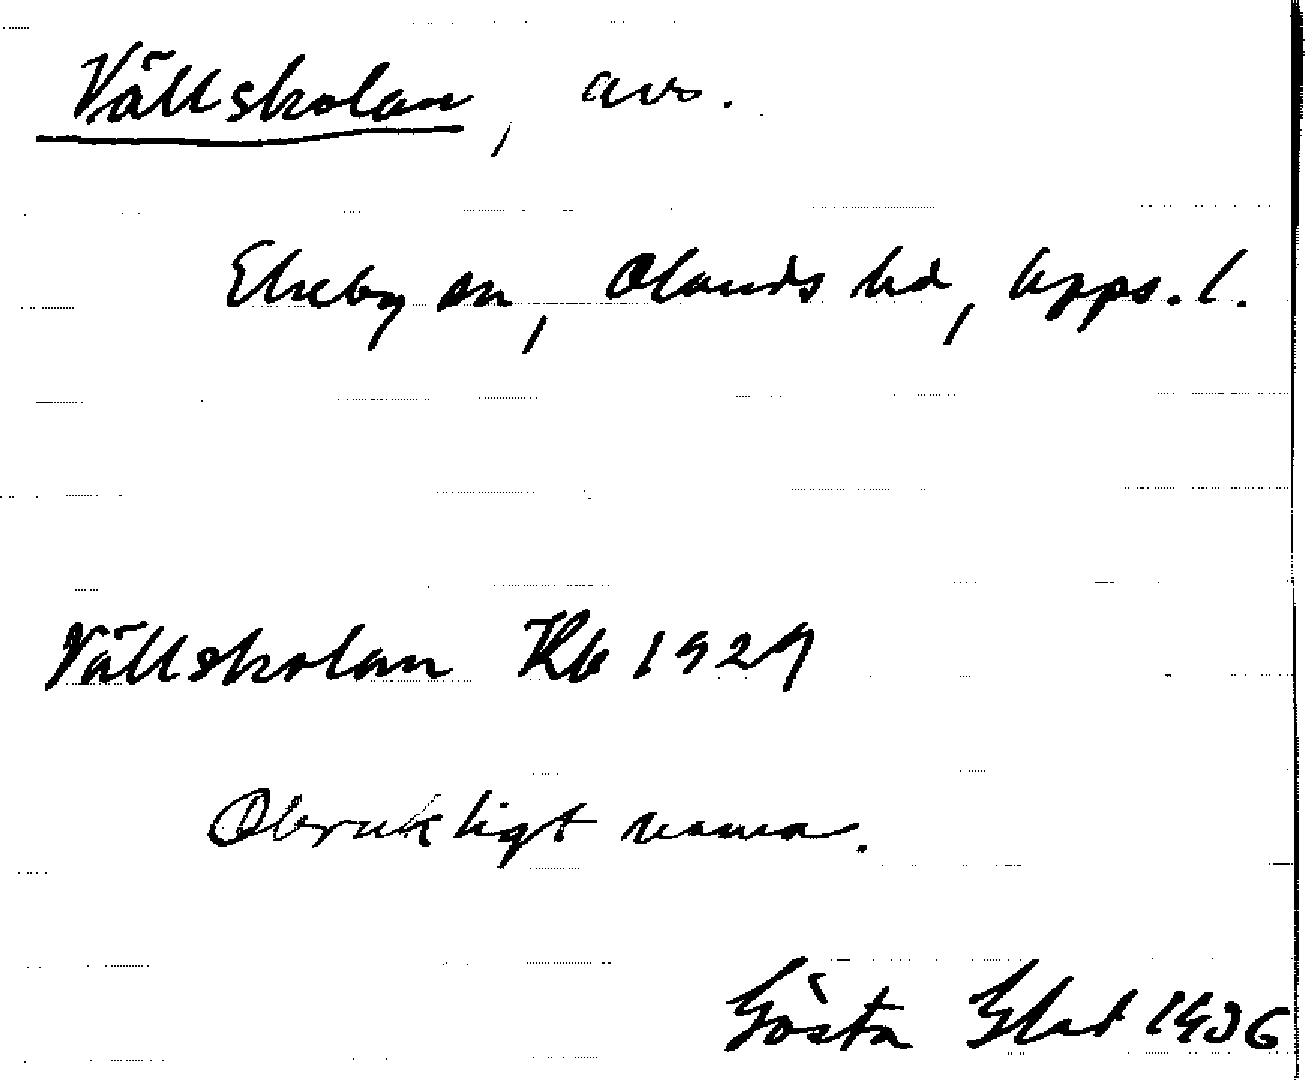 Vällskolan, avs.
Ekeby sn, Olands hd, Upps. l.
Vällskolan Kb 1929
Obrukligt namn.
Gösta Glad 1936